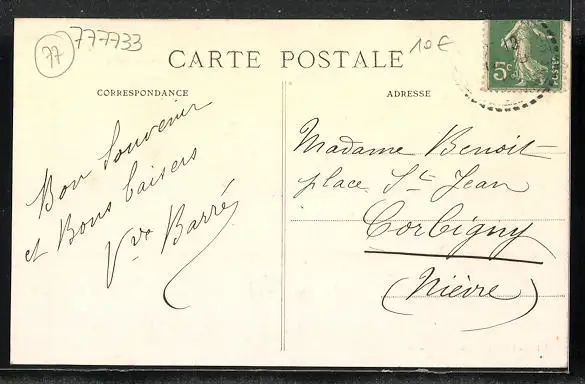 77
777733
CARTE POSTALE
10€
5c
POSTES
CORRESPONDANCE
ADRESSE
Bon Souvenir
et Bons baisers
Vve Barré
Madame Benoit
place St Jean
Corbigny
(Nièvre)